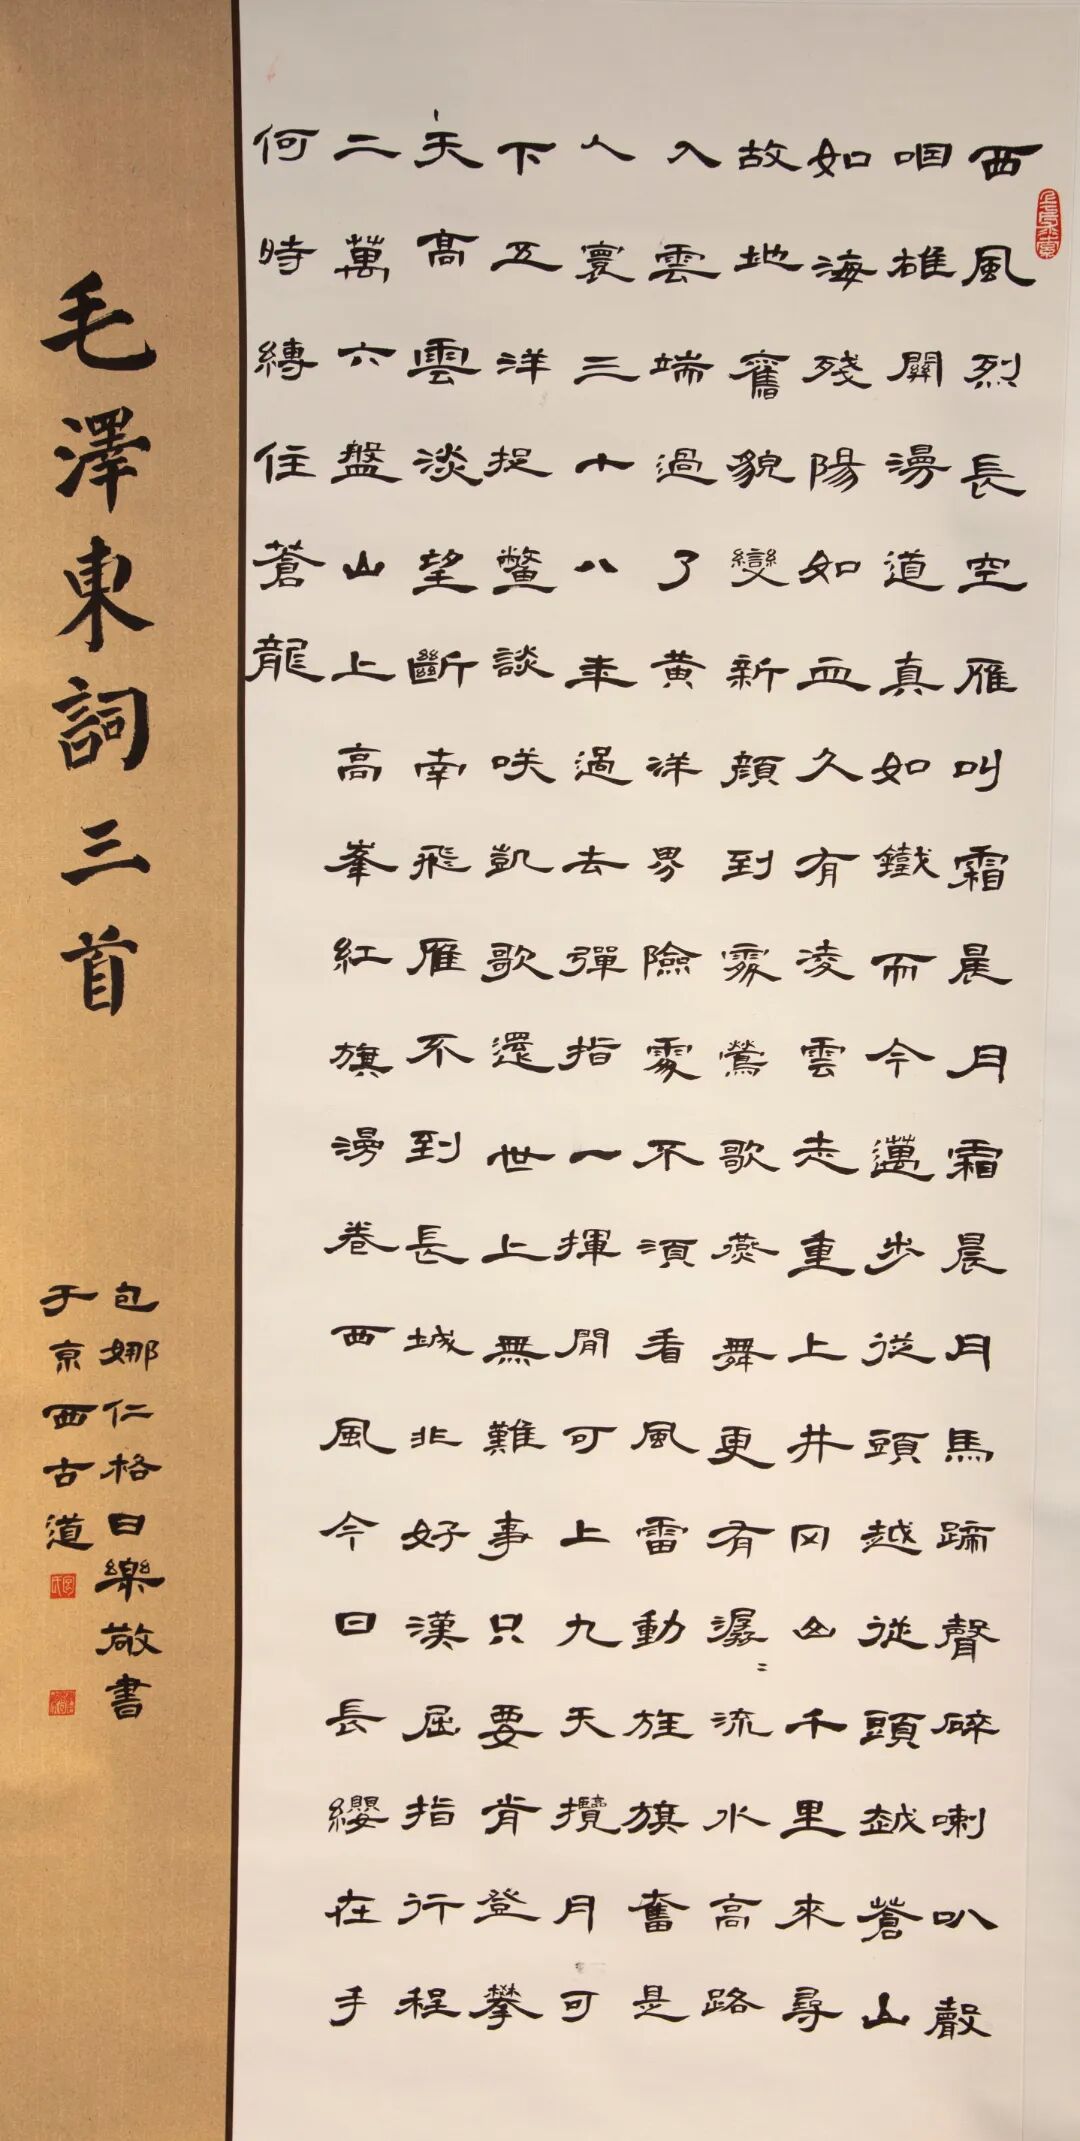 西風烈長空雁叫霜晨月霜晨月馬蹄聲碎喇叭聲
咽雄關漫道真如鐵而今邁步從頭越從頭越蒼山
如海殘陽如血久有凌雲志重上井岡山千里來尋
故地舊貌變新顏到處鶯歌燕舞更有潺〻流水高路
入雲端過了黃洋界險處不須看風雷動旌旗奮是
人寰三十八年過去彈指一揮間可上九天攬月可
下五洋捉鱉談咲凱歌還世上無難事只要肯登攀
天高雲淡望斷南飛雁不到長城非好漢屈指行程
二萬六盤山上高峯紅旗漫卷西風今日長纓在手
何時縛住蒼龍
毛澤東詞三首
包娜仁格日樂敬書
于京西古道